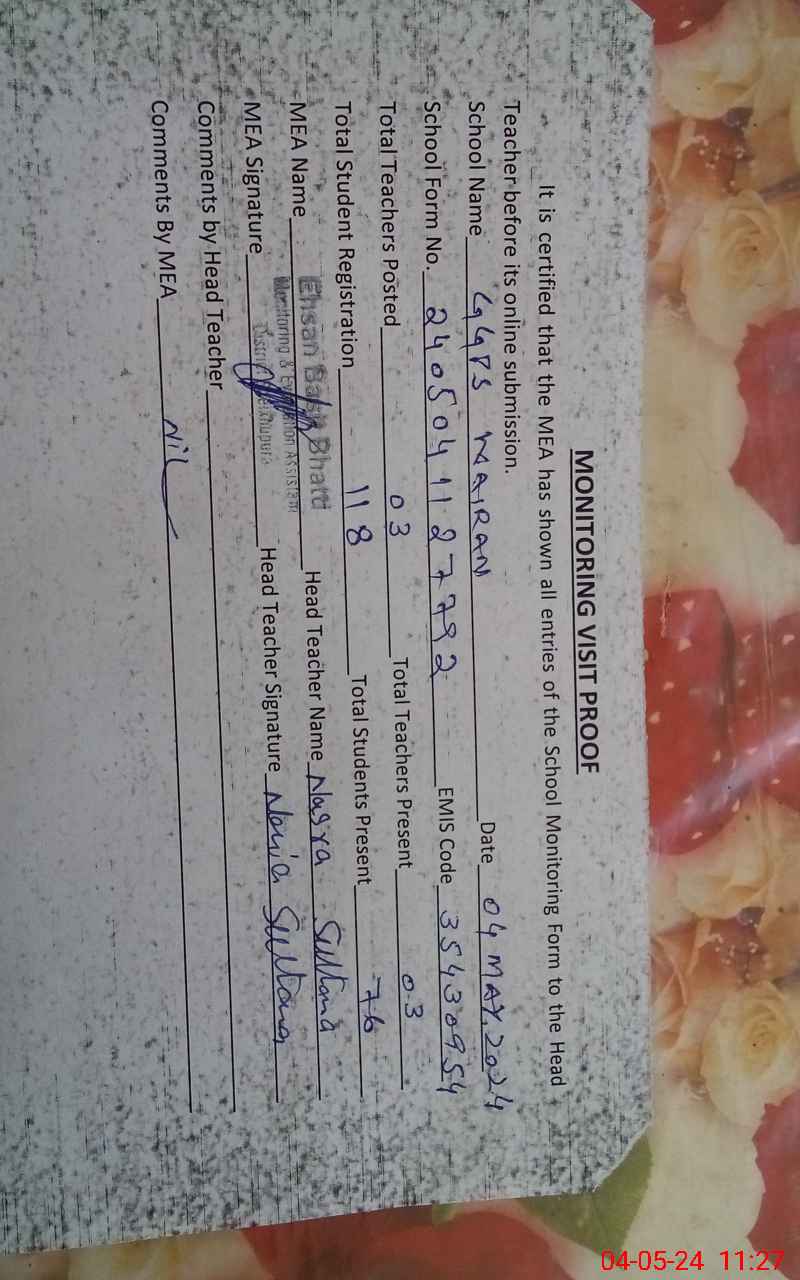 MONITORING VISIT PROOF
It is certified that the MEA has shown all entries of the School Monitoring Form to the Head
Teacher before its online submission.
School Name GGPS MAIRAN Date 04 MAY, 2024
School Form No. 24050411 27792 EMIS Code 35430954
Total Teachers Posted 03 Total Teachers Present 03
Total Student Registration 118 Total Students Present 76
MEA Name Ehsan Bhatti Head Teacher Name Nasra Sultana
Monitoring & Evaluation Assistant
District Sheikhupura
MEA Signature Head Teacher Signature Sultana
Comments by Head Teacher
Comments By MEA Nil
04-05-24 11:27